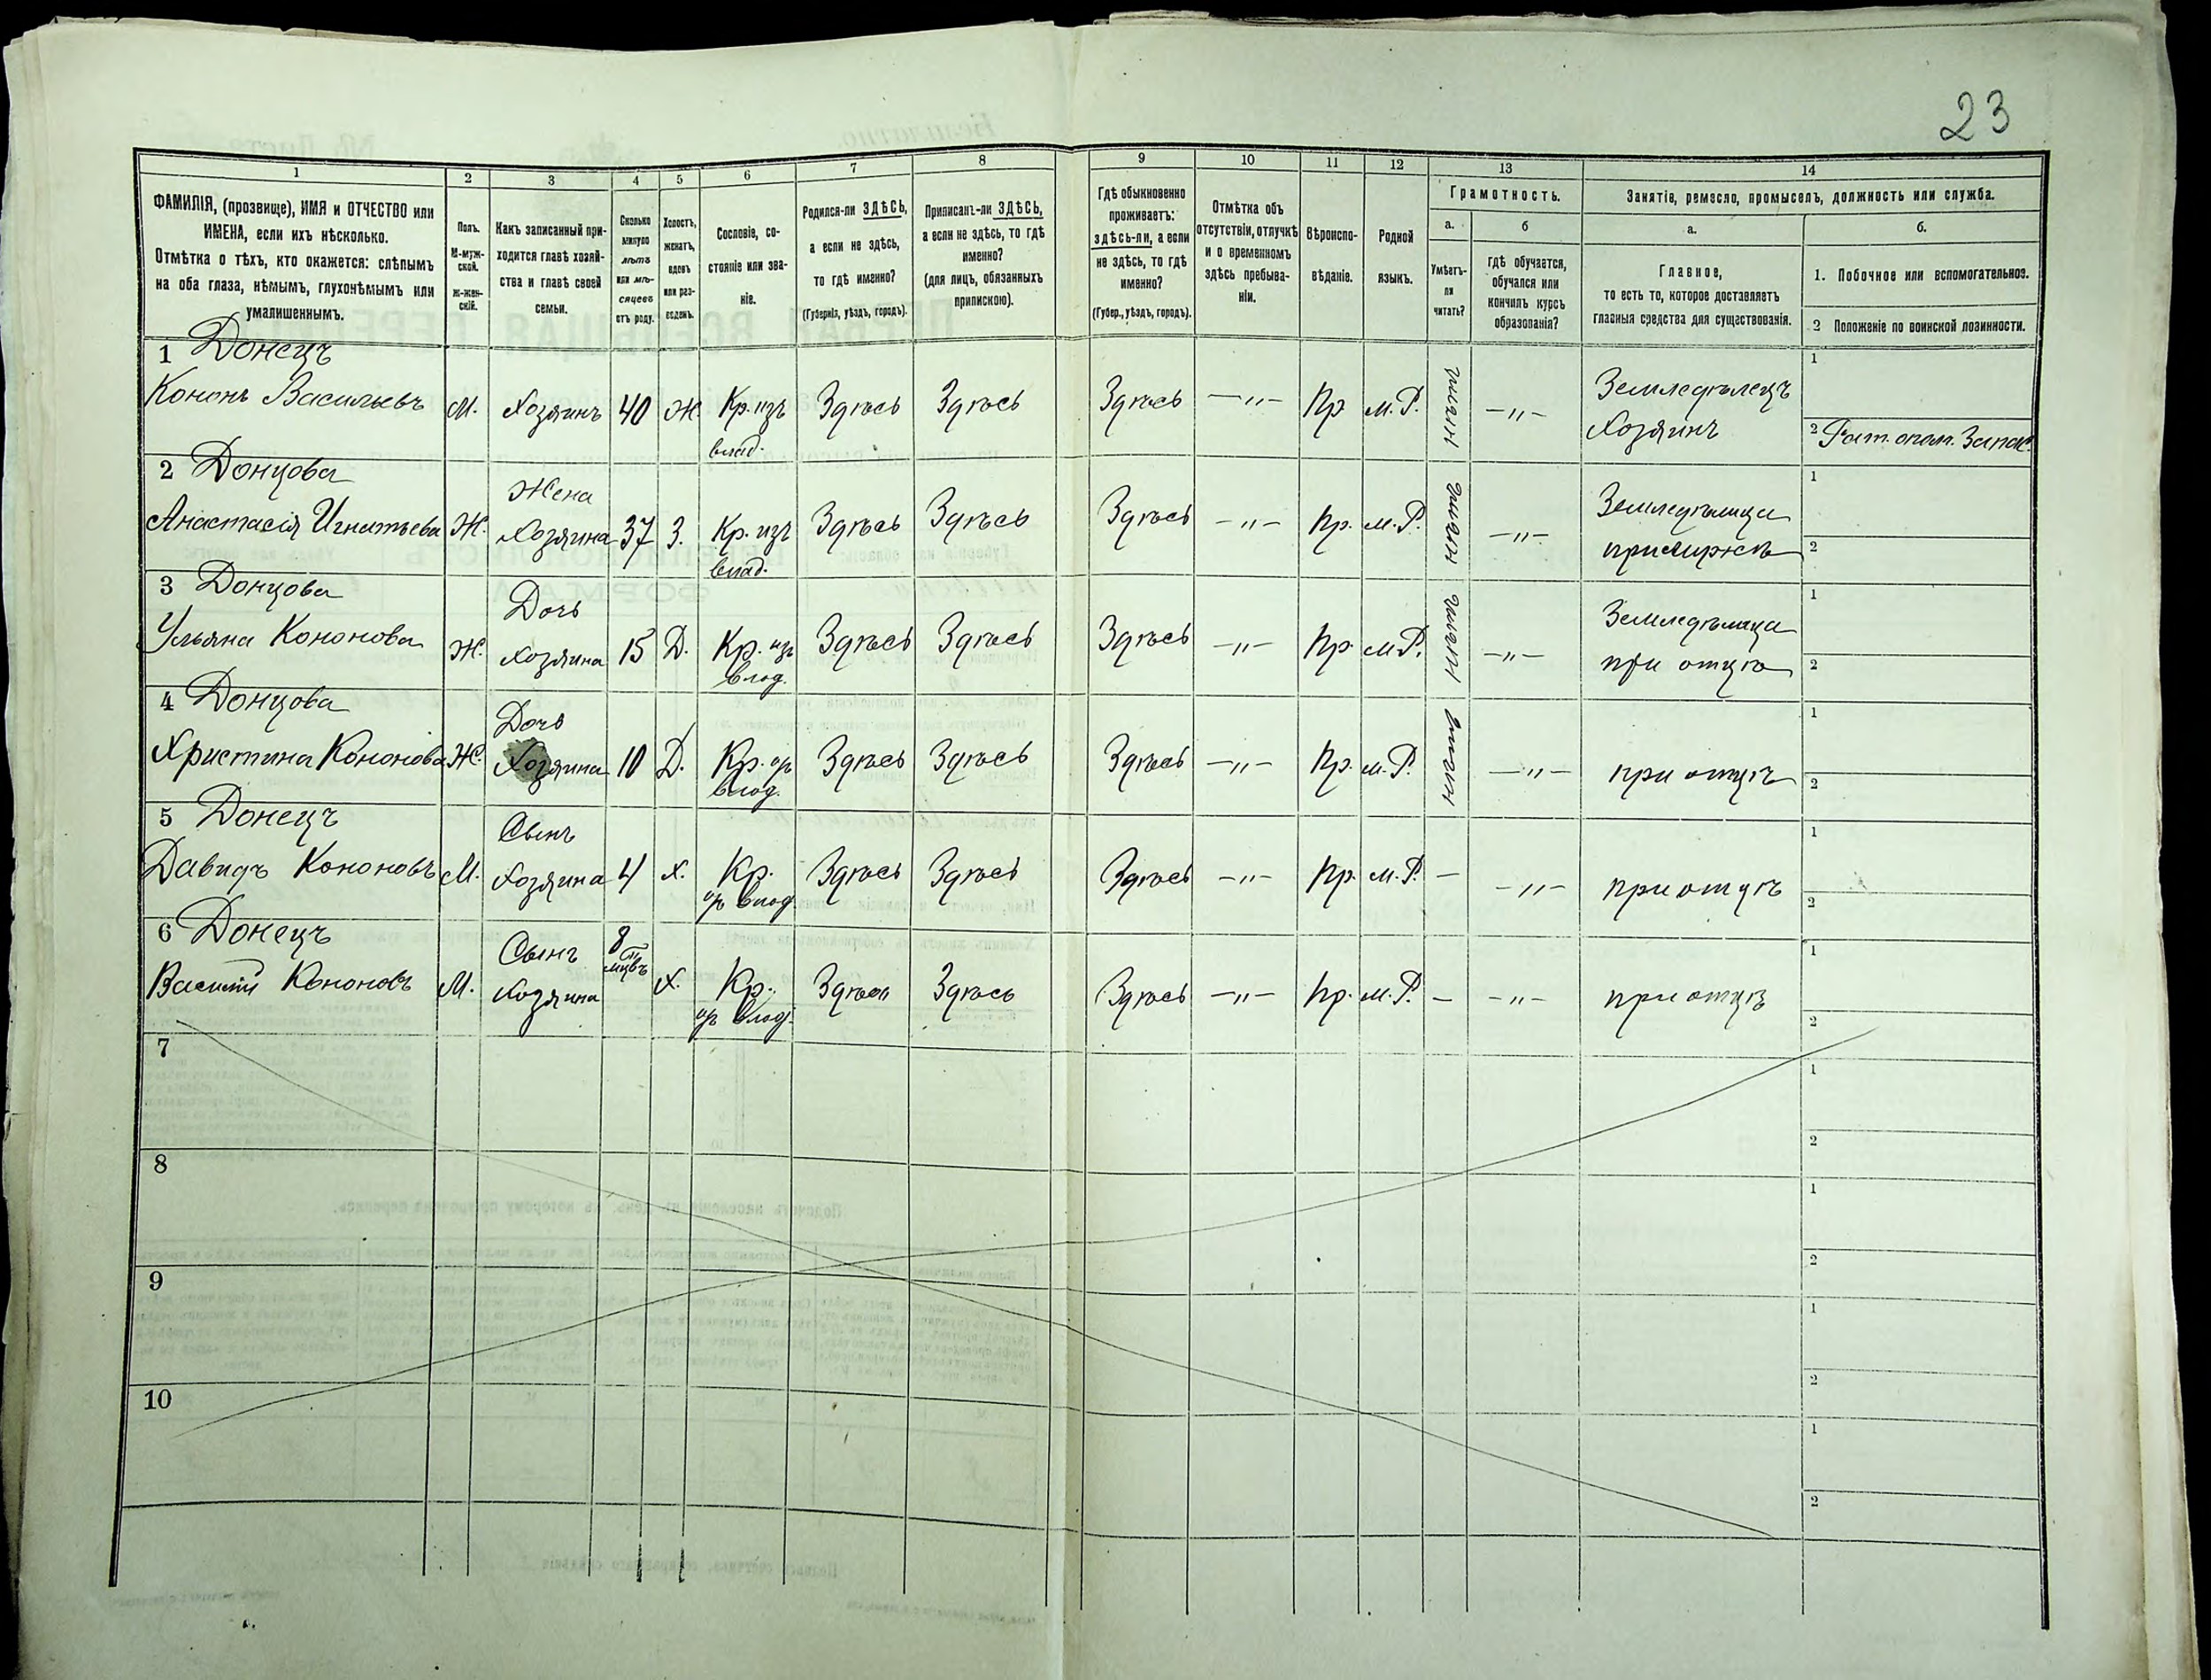 23
1
2
3
4
5
6
7
8
9
10
11
12
13
14
ФАМИЛІЯ, (прозвище), ИМЯ и ОТЧЕСТВО или
ИМЕНА, если ихъ нѣсколько.
Отмѣтка о тѣхъ, кто окажется: слѣпымъ
на оба глаза, нѣмымъ, глухонѣмымъ или
умалишеннымъ.
Полъ.
М-муж-
ской.
Ж-жен-
скій.
Какъ записанный при-
ходится главѣ хозяй-
ства и главѣ своей
семьи.
Сколько
минуло
лѣтъ
или мѣ-
сяцевъ
отъ роду.
Холостъ,
женатъ,
вдовъ
или раз-
веденъ.
Сословіе, со-
стояніе или зва-
ніе.
Родился-ли ЗДѢСЬ,
а если не здѣсь,
то гдѣ именно?
(Губернія, уѣздъ, городъ).
Приписанъ-ли ЗДѢСЬ,
а если не здѣсь, то гдѣ
именно?
(для лицъ, обязанныхъ
припискою).
Гдѣ обыкновенно
проживаетъ:
здѣсь-ли, а если
не здѣсь, то гдѣ
именно?
(Губер., уѣздъ, городъ).
Отмѣтка объ
отсутствіи, отлучкѣ
и о временномъ
здѣсь пребыва-
ніи.
Вѣроиспо-
вѣданіе.
Родной
языкъ.
Грамотность.
а.
Умѣетъ-
ли
читать?
б
гдѣ обучается,
обучался или
кончилъ курсъ
образованія?
Занятіе, ремесло, промыселъ, должность или служба.
а.
Главное,
то есть то, которое доставляетъ
главныя средства для существованія.
б.
1. Побочное или вспомогательное.
2 Положеніе по воинской повинности.
1 Донецъ
Кононъ Васильевъ М. Хозяинъ 40 Ж Кр. изъ влад. Здѣсь Здѣсь Здѣсь —"— Пр м.Р. —"— Земледѣлецъ
Хозяинъ
1
2 Рат. опол. Запас
2 Донцова
Анастасія Игнатьева Ж. Жена Хозяина 37 З. Кр. изъ влад. Здѣсь Здѣсь Здѣсь —"— Пр. м.Р. —"— Земледѣлица
1
2
3 Донцова
Ульяна Кононова Ж. Дочь Хозяина 15 Д. Кр. изъ влад. Здѣсь Здѣсь Здѣсь —"— Пр. м.Р. —"— Земледѣлица
при отцѣ
1
2
4 Донцова
Христина Кононова Ж. Дочь Хозяина 10 Д. Кр. влад. Здѣсь Здѣсь Здѣсь —"— Пр. м.Р. —"— при отцѣ
1
2
5 Донецъ
Давидъ Кононовъ М. Сынъ Хозяина 4 Х. Кр. влад. Здѣсь Здѣсь Здѣсь —"— Пр. м.Р. — —"— при отцѣ
1
2
6 Донецъ
Василій Кононовъ М. Сынъ Хозяина 8 Х. Кр. влад. Здѣсь Здѣсь Здѣсь —"— Пр. м.Р. — —"— при отцѣ
1
2
7
1
2
8
1
2
9
1
2
10
1
2